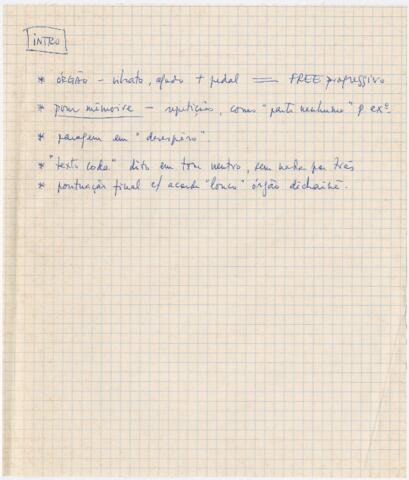 INTRO
* ÓRGÃO - vibrato, agudo + pedal = FREE progressivo
* pour mémoire - repetições, como "parte nenhuma" p. exº
* paragem em "desespero".
* "texto coda" dito em tom neutro, sem nada por trás
* pontuação final c/ acorde "louco" órgão déchainé.